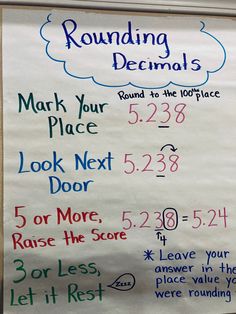 Rounding
Decimals
Mark Your
Place
Round to the 100ths place
5.238
Look Next
Door
5.238
5 or More,
Raise the Score
5.238 = 5.24
4
3 or Less,
Let it Rest
Zzzz
* Leave your
answer in the
place value yo
were rounding